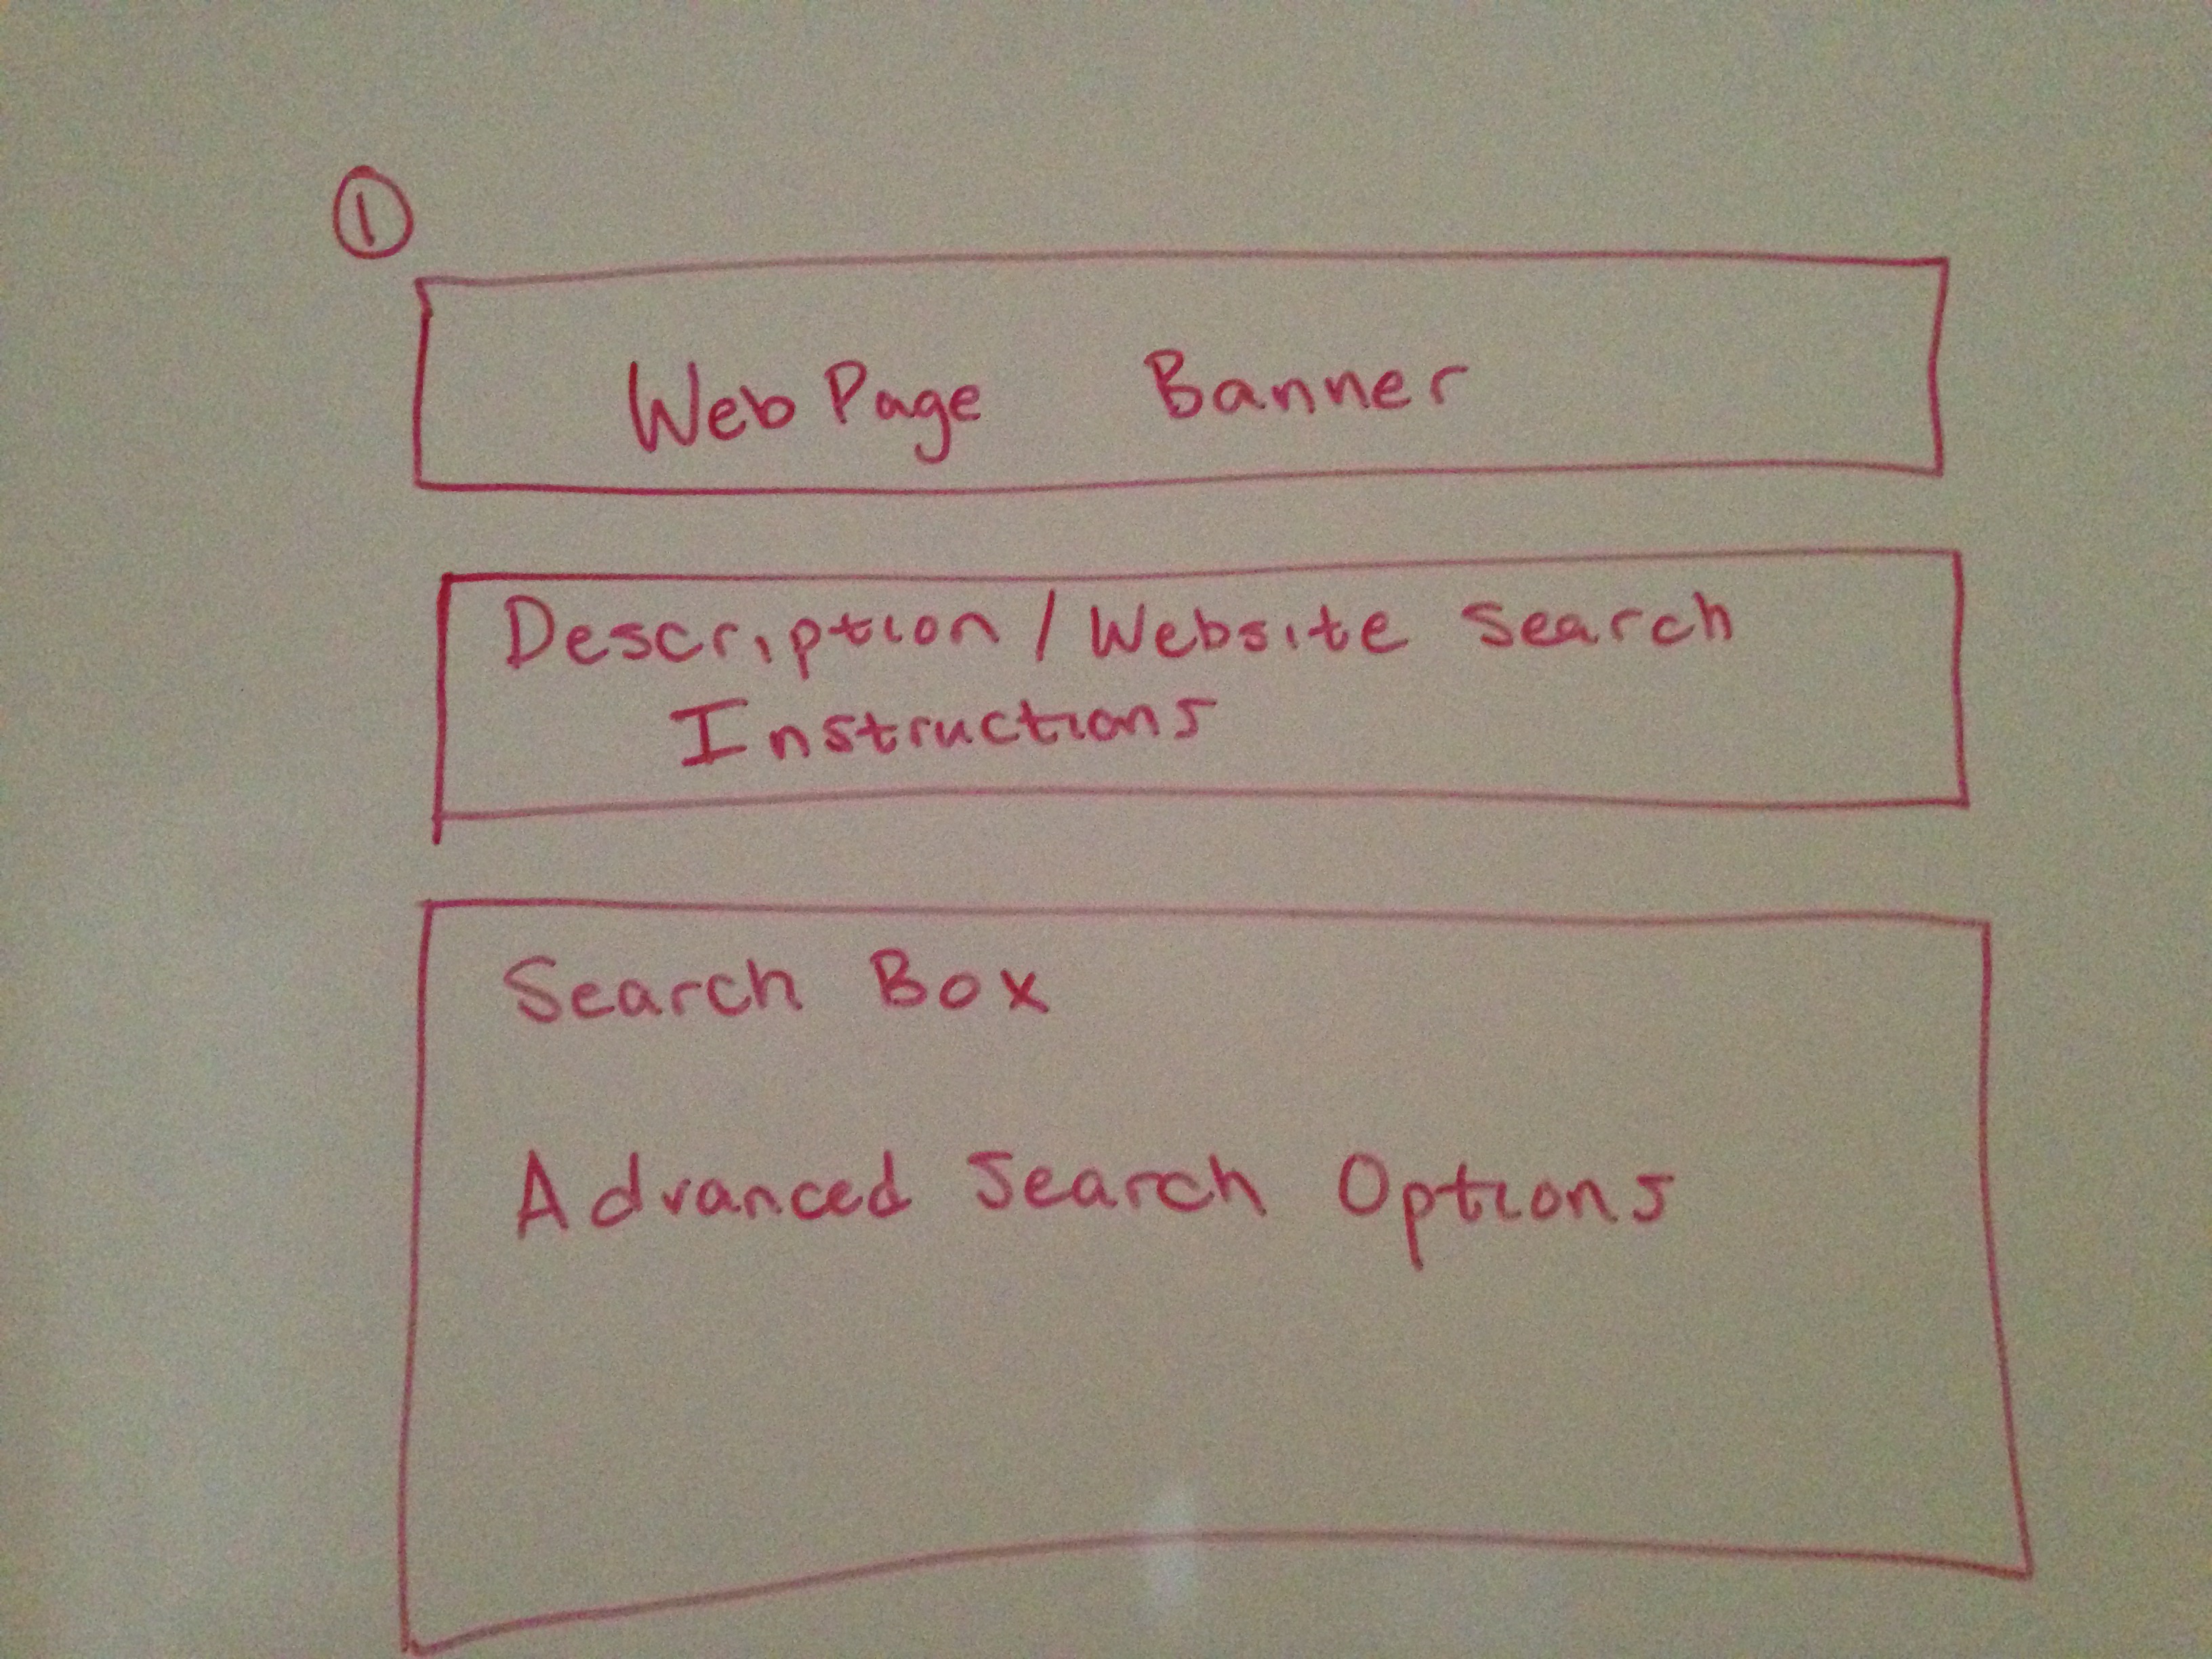 1
Web Page Banner
Description / Website Search
Instructions
Search Box
Advanced Search Options